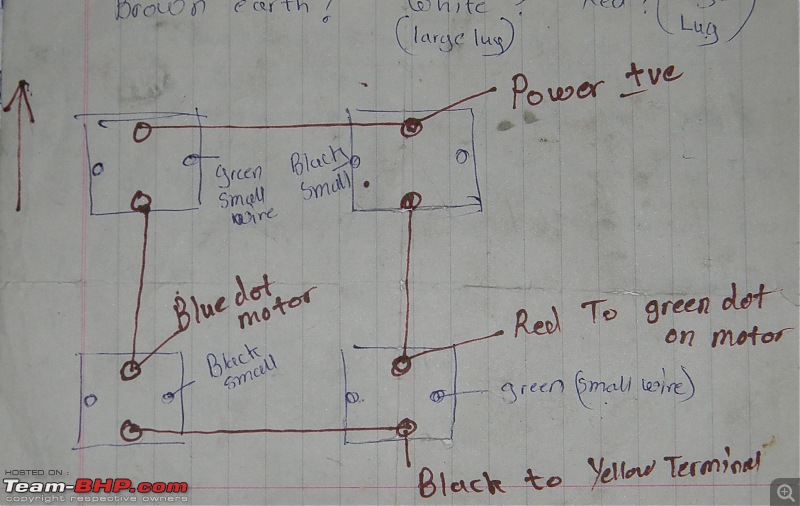 Brown earth?
White ?
(large lug)
Red ?
Lug)
Power +ve
green
small
wire
Black
small
Blue dot
motor
Red To green dot
on motor
Black
small
green (small wire)
Black to Yellow Terminal
HOSTED ON :
Team-BHP.com
copyright respective owners